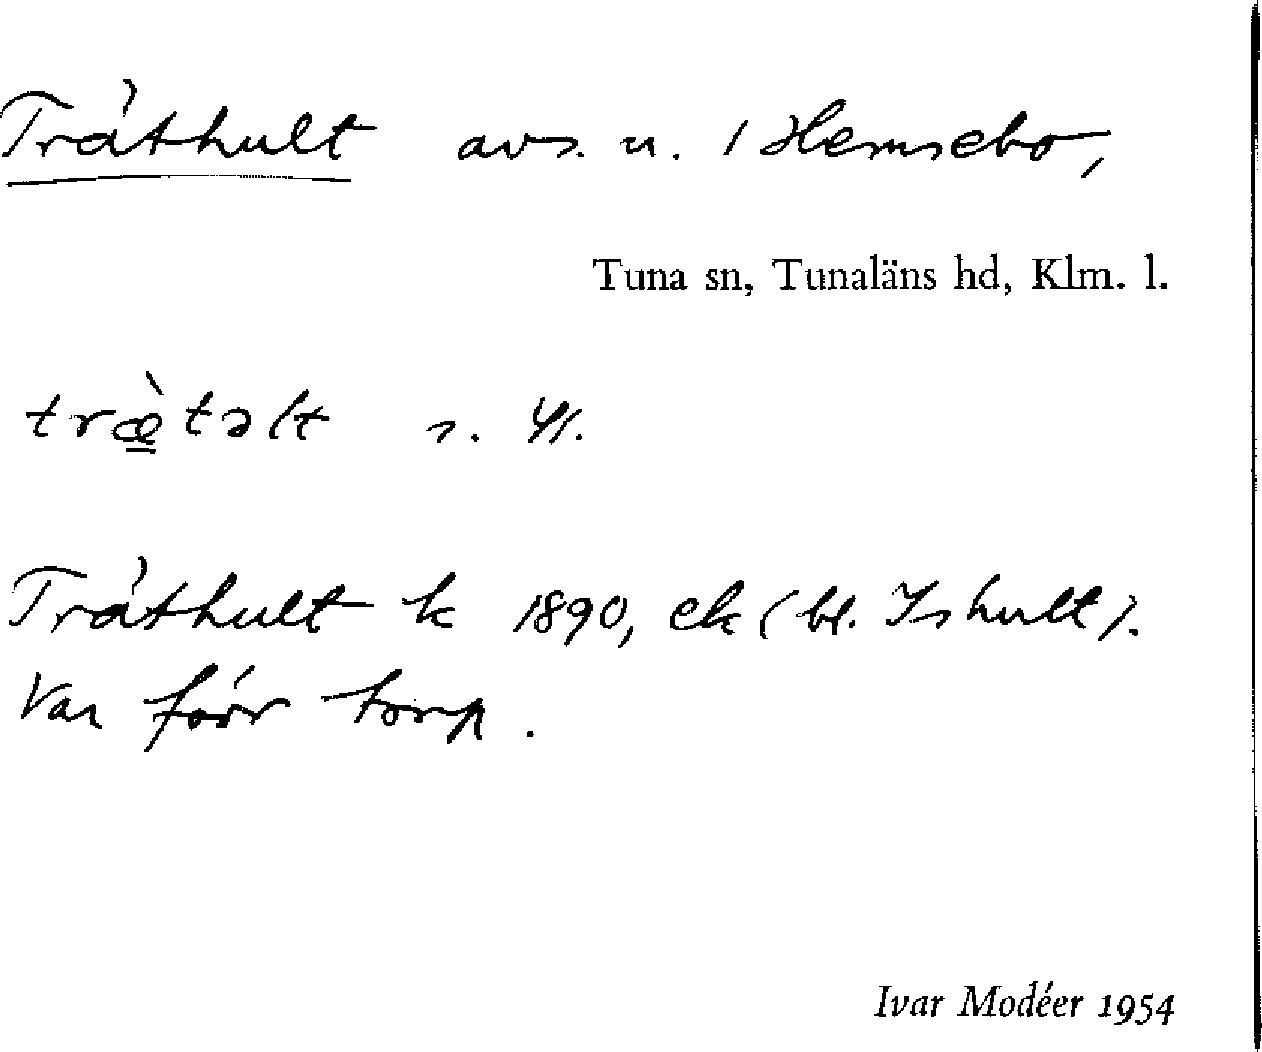 Träthult avs. u. 1 Hemsebo,
Tuna sn, Tunaläns hd, Klm. l.
træ̀təlt s. st.
Träthult k 1890, ek (bl. Ishult).
Var förr torp.
Ivar Modéer 1954